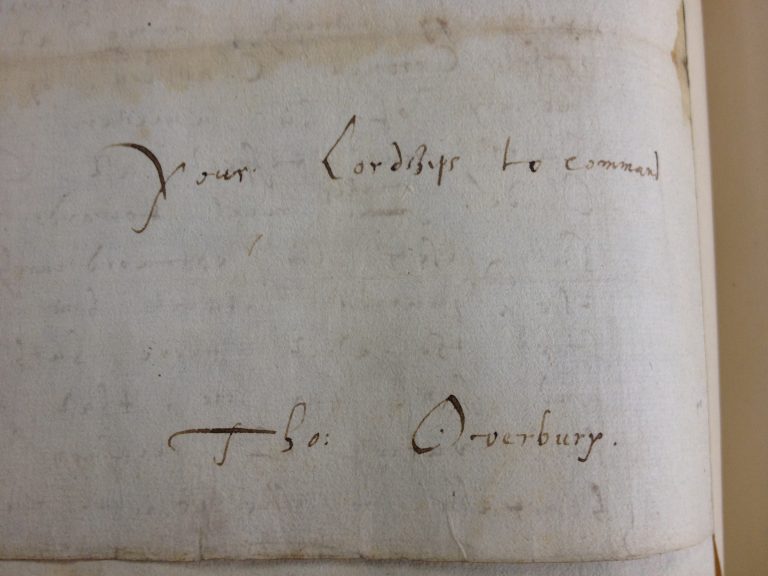 Your Lordships to command
Tho: Overbury.